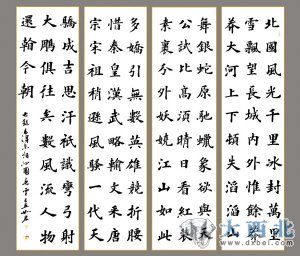 北國風光千里冰封萬里
雪飄望長城內外惟餘莽
莽大河上下頓失滔滔山
舞銀蛇原馳蠟象欲與天
公試比高須晴日看紅裝
素裹分外妖嬈江山如此
多嬌引無數英雄競折腰
惜秦皇漢武略輸文采唐
宗宋祖稍遜風騷一代天
驕成吉思汗衹識彎弓射
大鵰俱往矣數風流人物
還看今朝
毛澤東詞沁園春
大西北
www.dxbei.com